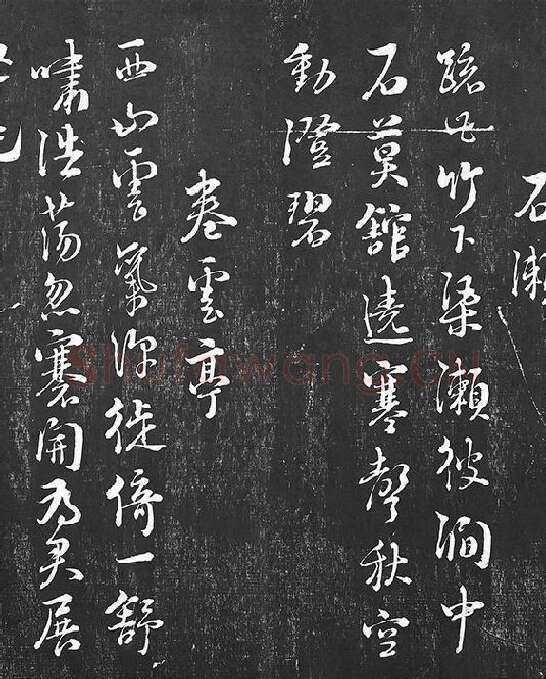 石瀨
疏此竹下渠瀨彼澗中
石莫館遶寒聲秋空
動澄碧
卷雲亭
西山雲氣深徙倚一舒
嘯浩蕩忽褰開為君展
shufawang.cn